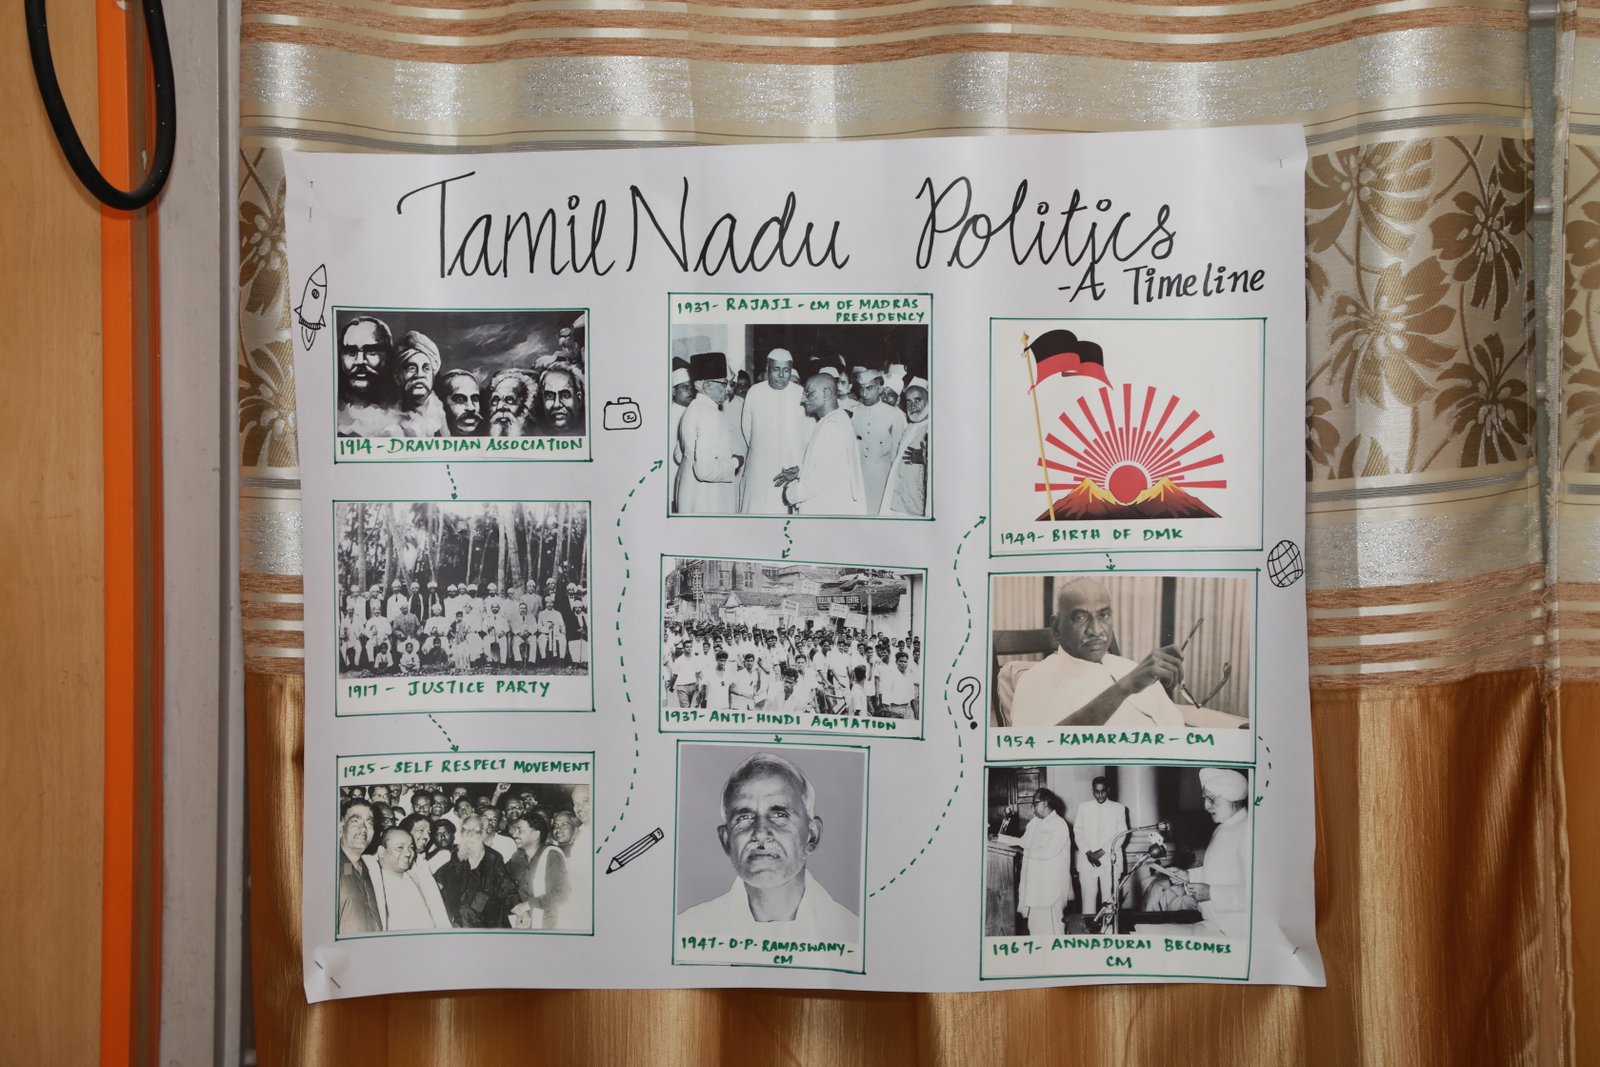 Tamil Nadu Politics
-A Timeline
1914 - DRAVIDIAN ASSOCIATION
1917 - JUSTICE PARTY
1925 - SELF RESPECT MOVEMENT
1937 - RAJAJI - CM OF MADRAS
PRESIDENCY
1937 - ANTI-HINDI AGITATION
1947 - O-P- RAMASWAMY -
CM
1949 - BIRTH OF DMK
1954 - KAMARAJAR - CM
1967 - ANNADURAI BECOMES
CM